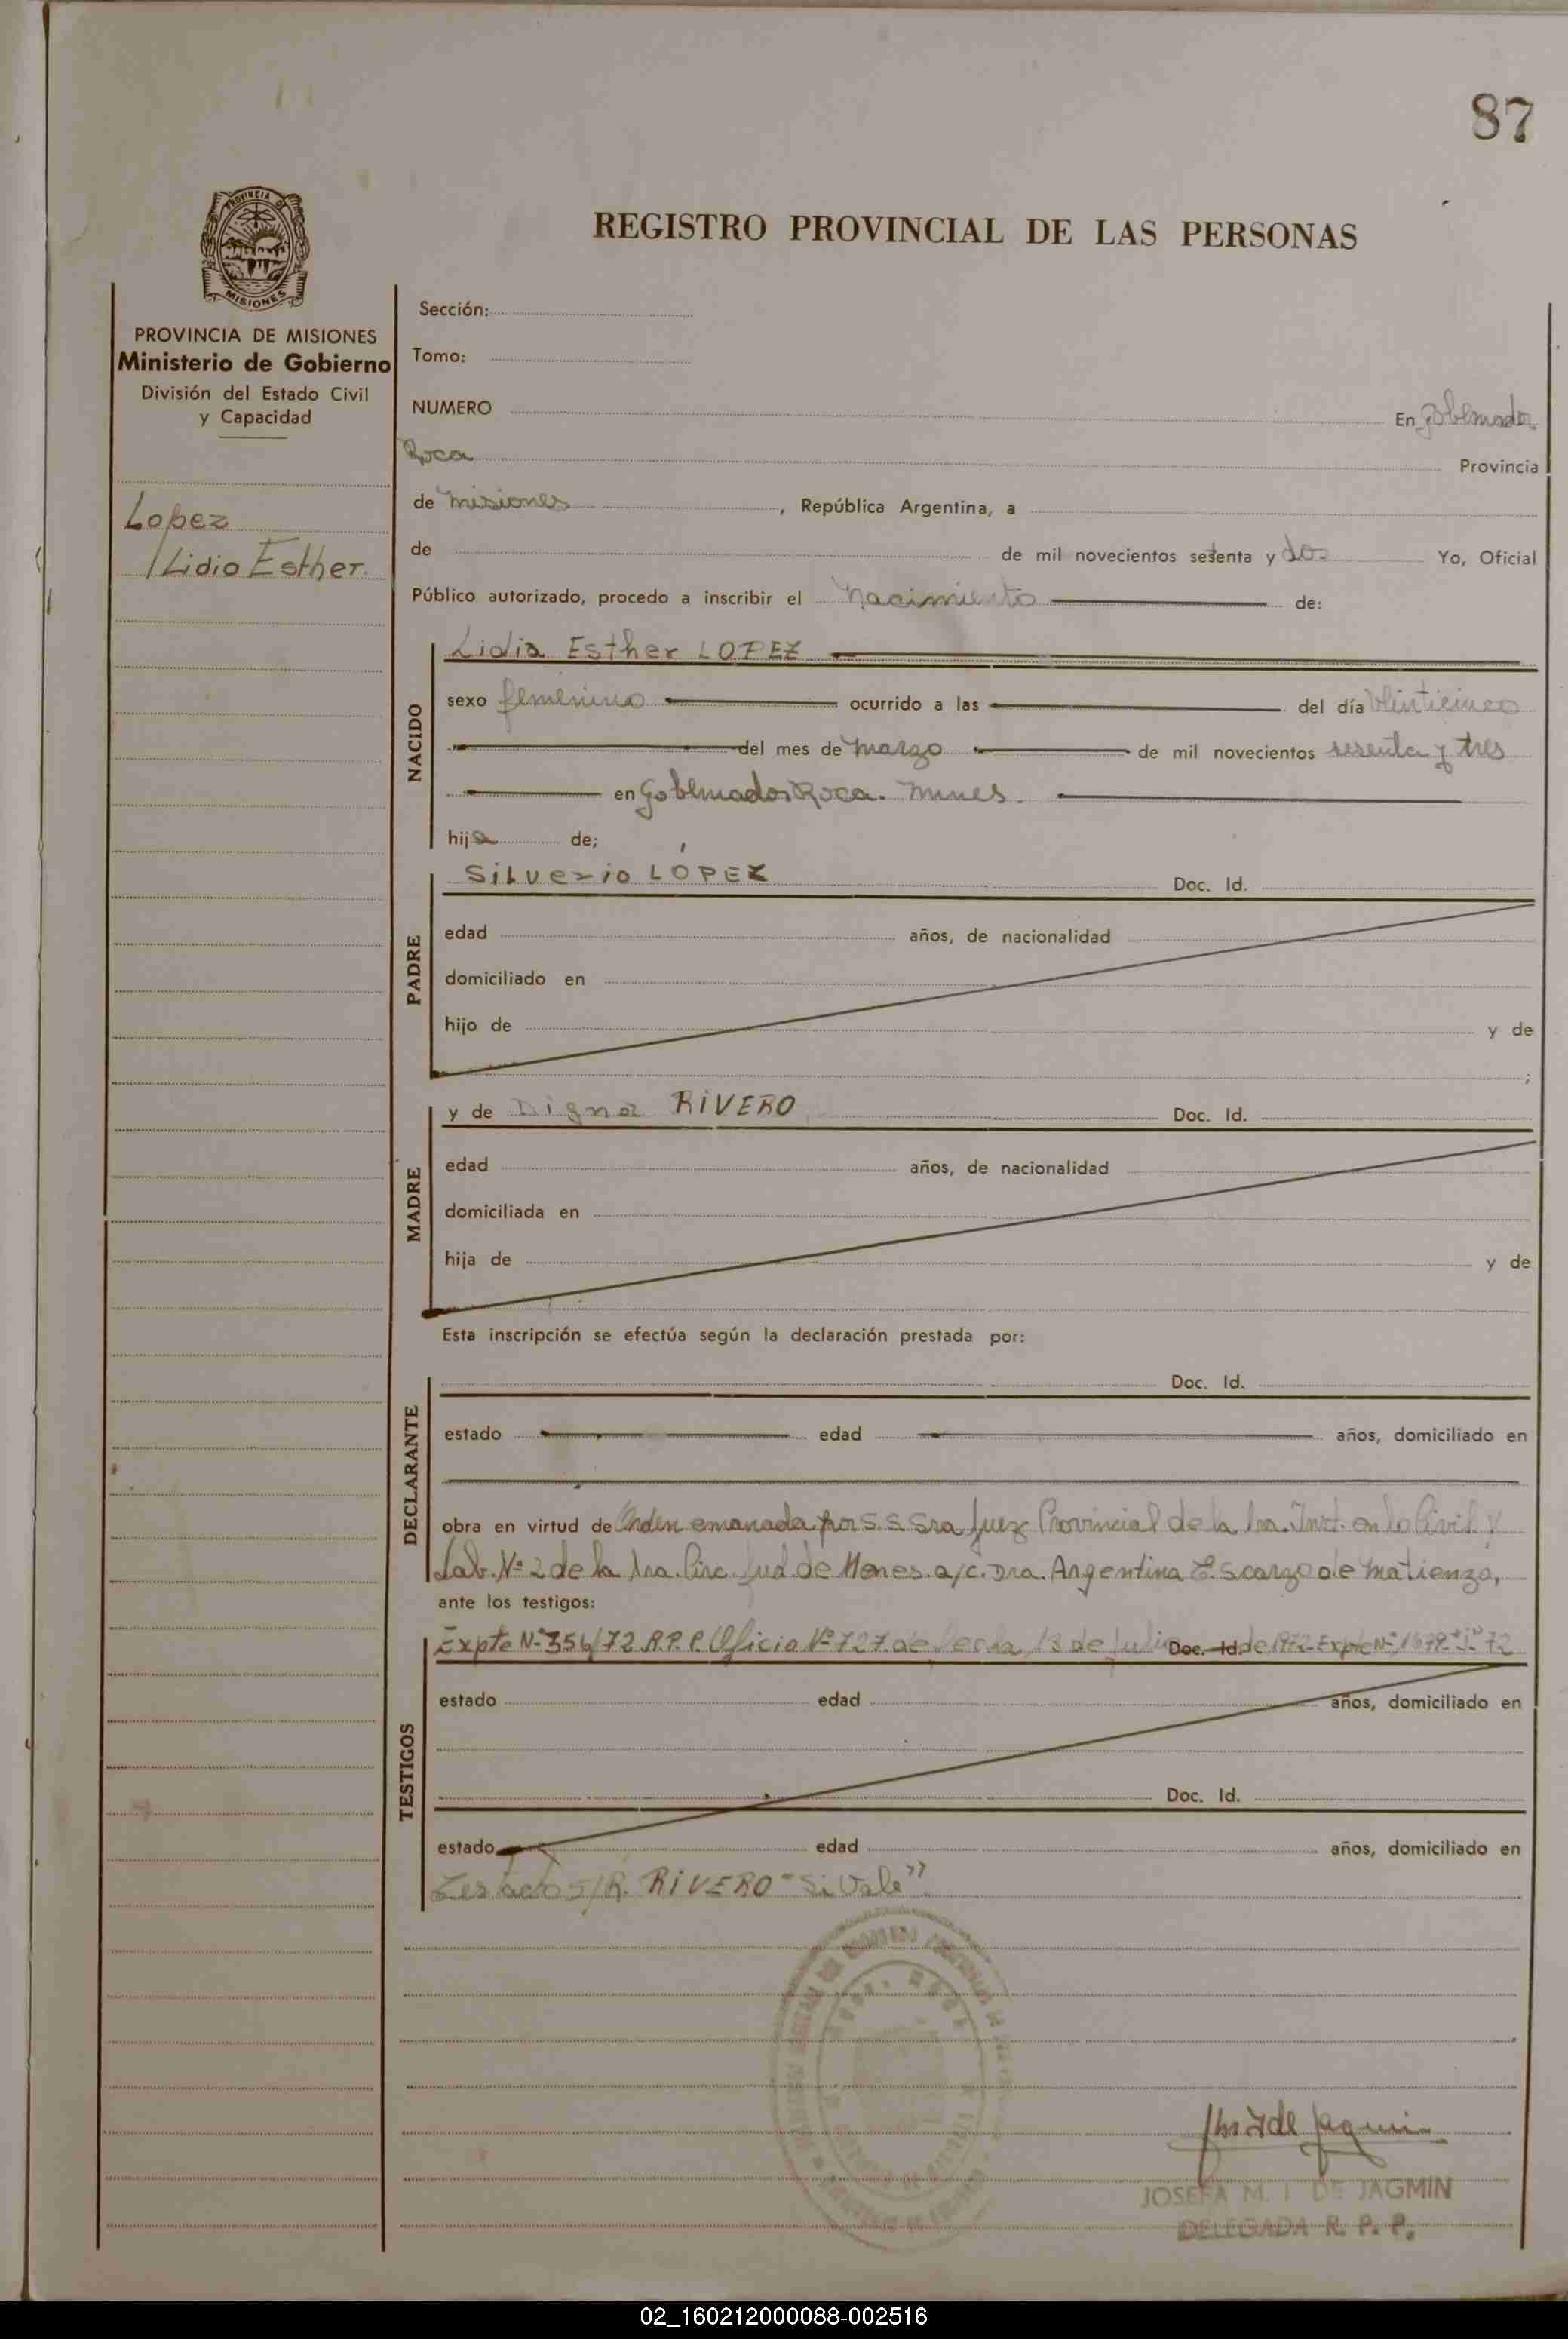 87
PROVINCIA DE
MISIONES
REGISTRO PROVINCIAL DE LAS PERSONAS
PROVINCIA DE MISIONES
Ministerio de Gobierno
División del Estado Civil
y Capacidad
Lopez
Lidio Esther
Sección:
Tomo:
NUMERO En Gobernador
Roca Provincia
de Misiones, República Argentina, a
de de mil novecientos setenta y dos Yo, Oficial
Público autorizado, procedo a inscribir el Nacimiento de:
NACIDO
Lidia Esther LOPEZ
sexo femenino ocurrido a las del día Veinticinco
del mes de Marzo de mil novecientos sesenta y tres
en Gobernador Roca. Mnes.
hija de;
PADRE
Silverio LÓPEZ Doc. Id.
edad años, de nacionalidad
domiciliado en
hijo de y de
;
MADRE
y de Digna RIVERO Doc. Id.
edad años, de nacionalidad
domiciliada en
hija de y de
Esta inscripción se efectúa según la declaración prestada por:
DECLARANTE
Doc. Id.
estado edad años, domiciliado en
obra en virtud de Orden emanada por S.S Sra Juez Provincial de la 1ra. Inst. en lo Civil y
Lab. Nº 2 de la 1ra. Circ. Jud. de Mones. a/c. Dra. Argentina E. Scarzo de Matienzo,
ante los testigos:
TESTIGOS
Expte Nº 356/72 R.P.P. Oficio Nº 727 de fecha 13 de Julio Doc. Id. de 1972 Expte Nº
estado edad años, domiciliado en
Doc. Id.
estado edad años, domiciliado en
Testado S/R. RIVERO "Si Vale"
JOSEFA M. I. DE JAGMIN
DELEGADA R. P. P.
02_160212000088-002516